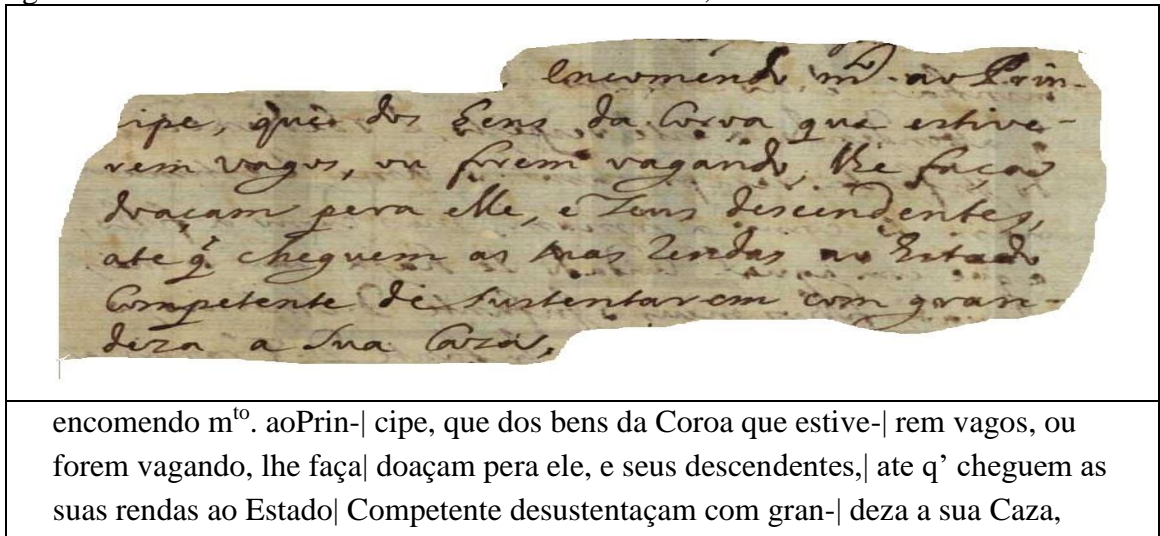 encomendo m^to. ao Prin-
cipe, que dos bens da Coroa que estive-
rem vagos, ou forem vagando, lhe faça
doaçam pera elle, e seus descendentes,
ate q̃ cheguem as suas rendas ao Estado
Competente de sustentarem com gran-
deza a sua Caza,
encomendo m^to. aoPrin-| cipe, que dos bens da Coroa que estive-| rem vagos, ou
forem vagando, lhe faça| doaçam pera ele, e seus descendentes,| ate q’ cheguem as
suas rendas ao Estado| Competente desustentaçam com gran-| deza a sua Caza,